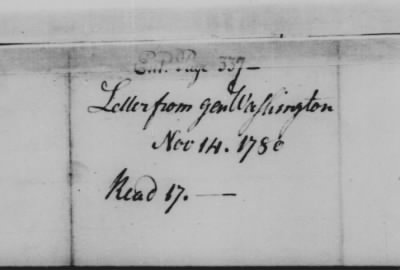 Ent. Page 337—
Letter from gen Washington
Nov 14. 1780
Read 17. —